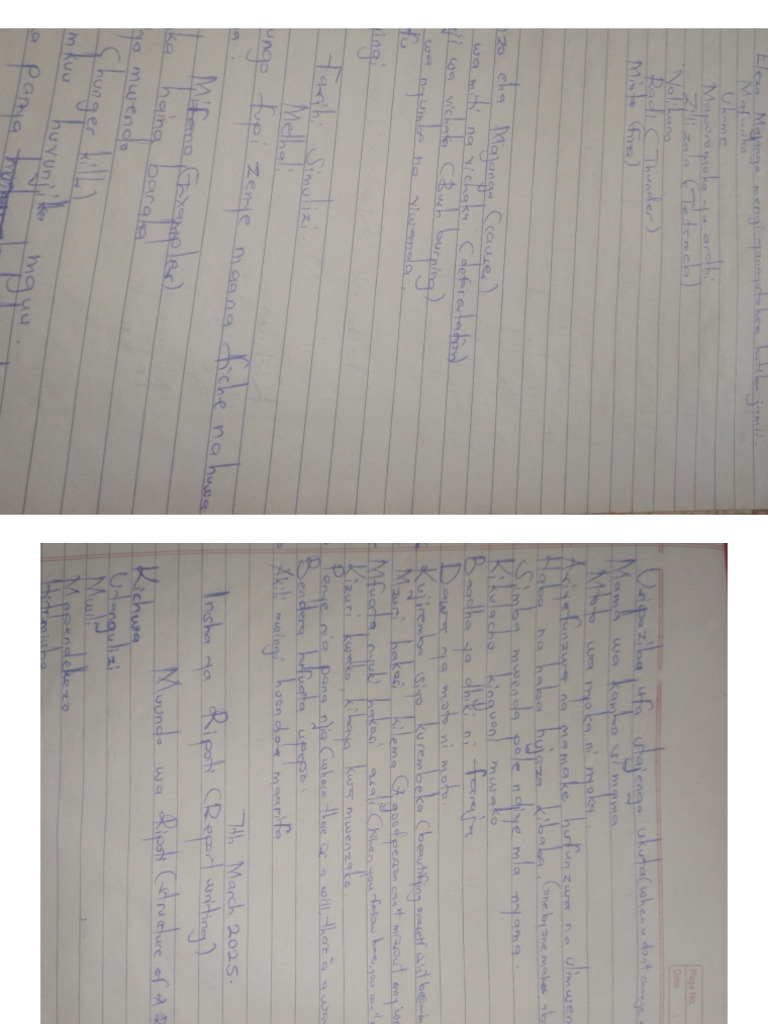 Eleza Majanga mengi yanayotokea katika jamii.
Mafuriko
Ukame
Maporomoko ya ardhi
Zilizala (Tetemeko)
Volikano
Radi (Thunder)
Mioto (fire)
zo cha Majanga (causes)
wa miti na vichaka (deforestation)
ji wa vichaka (Bush burning)
wa nyumba na viwanda.
fu
ingi
Fasihi Simulizi.
Methali
ungo fupi zenye maana fiche na huwa
a.
Mifano (Examples)
ka haina baraka
ya mwendo
(hunger kills)
mkuu huvunjika mguu.
a panya
Usipoziba ufa utajenga ukuta (When u dont change
Mama wa kambo si mama
Mtoto wa nyoka ni nyoka.
Asiyefunzwa na mamake hufunzwa na ulimwen
Haba na haba hujaza kibaba. (one by one makes a b
Simba mwenda pole ndiye mla nyama.
Kikulacho kinguoni mwako
Baada ya dhiki ni faraja
Dawa ya moto ni moto
Kujiremba siyo kurembeka (beautifying oneself isn't becom
Mzuri hakosi kilema (A good person can't miss out on
Mfuata nyuki hakosi asali (When you follow bees, you can't
Kizuri kwako, kibaya kwa mwenzako.
Penye nia pana njia (where there is a will, there's a way
Bendera hufuata upepo.
Akili nyingi huondoa maarifa
7th March 2025.
Insha ya Ripoti (Report writing)
Muundo wa Ripoti (structure of a R
Kichwa
Utangulizi
Mwili
Mapendekezo
Hitimisho
Page No.
Date